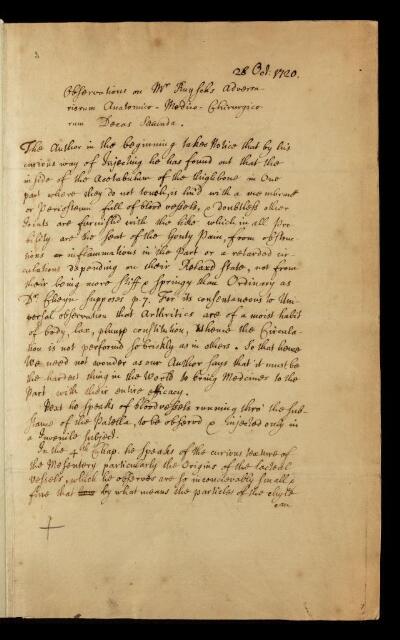 28 Oct: 1720.
Observations on Mr Ruysch's Adversa-
riorum Anatomico-Medico-Chirurgico
rum Decas Secunda.
The Author in the beginning takes Notice that by his
curious way of Injecting he has found out that the
inside of the Acetabulum of the Thighbone in One
part where they do not touch, is lin'd with a membrane
or Periosteum full of blood vessels, & doubtless other
Joints are furnish'd with the like which in all Pro
bility are the seat of the Gouty Pain, from obstruc
tions or inflammations in the Part or a retarded cir-
culations depending on their Relaxd State, not from
their being more stiff & springy than Ordinary as
Dr. Cheyn supposes p. 7. For its consentaneous to Uni-
versal observation that Arthritics are of a moist habit
of body, lax, plump constitution, whence the Circula-
tion is not perform'd so briskly as in others. So that hence
We need not wonder as our Author says that it must be
the hardest thing in the World to bring Medcines to the
Part with their entire efficacy.
Next he speaks of bloodvessels running thro' the sub-
stance of the Patella, to be observd & Injected only in
a Juvenile Subject.
In the 4th Chap. he speaks of the curious texture of
the Mesentery particularly the Origins of the lacteal
vessels, which he observes are so inconceivably small &
fine that by what means the particles of the chyle
can